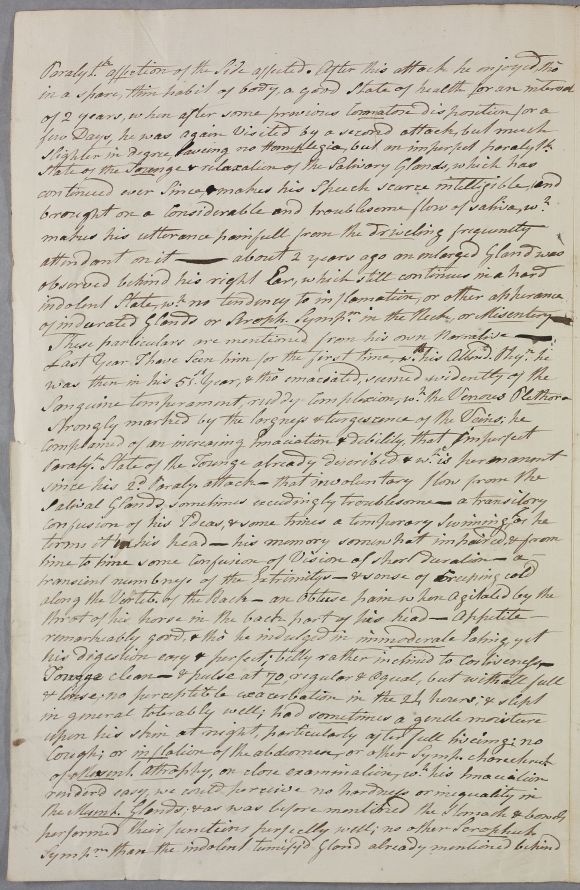 Paralyt.ᵗⁱᶜ affection of the Side affected. After this attack he enjoyed tho
in a spare, thin habit of body a good State of health for an interval
of 2 years, when after some previous Comatose disposition for a
few Days, he was again Visited by a second attack, but much
slighter in degree, leaving no Hemiplegia, but an imperfect paralyt.ᶜ
State of the Tounge & relaxation of the Salivary Glands, which has
continued ever Since & makes his Speech scarce intelligible, and
brought on a Considerable and troublesome flow of saliva, wᶜʰ
makes his utterance painfull from the driveling frequently
attendant on it — about 2 years ago an enlarged Gland was
observed behind his right Ear, which still continues in a hard
indolent State, wᵗʰ no tendency to inflamation, or other apperance
of indurated Glands or Scroph. Sympᵐ in the Neck, or Misentery —
These particulars are mentioned from his own Narrative —
Last Year I have Seen him for the first time, wᵗʰ his Attendᵍ Physⁿ. he
was then in his 51ˢᵗ Year, & tho emaciated, seemed evidently of the
Sanguine temperament, ruddy Complexion, wᵗʰ the Venous Plethora
Strongly marked by the largness & turgescence of the Veins; he
Complained of an increasing Emaciation & debility, that Imperfect
Paralyᶜ State of the Tounge already described & wᶜʰ is permanent
since his 2d Paraly attack — that involuntary flow from the
Salival Glands, sometimes exceedingly troublesome — a transitory
Confusion of his Ideas, & some times a temporary Swimming (as he
terms it) in his head — his memory somewhat impaired & from
time to time some Confusion of Vision of short duration — a
transient numbness of the Extrimitys — & sense of Creeping cold
along the Verteb. of the Back — an Obtuse pain when Agitated by the
trot of his horse in the back part of his head — Appetite
remarkeably good, & tho he indulged in immoderate Eating, yet
his digestion easy & perfect, belly rather inclined to Costiveness —
Toungge clean — & pulse at 70 regular & equal, but withall full
& tense; no perceptible exacerbation in the 24 hours; & slept
in general tolerably well; had sometimes a gentle moisture
upon his skin at night, particularly after full living; no
Cough; or inflation of the abdomen, or other Symp. charecterisᶜ
of Mesent. Atrophy, on close examination, wᶜʰ his Emaciation
renderd easy, we could perceive no hardness or inequality in
the Mesent. Glands; & as was before mentioned the Stomach & bowels
performed their functions perfectly well; no other Scrophul.
Sympᵐ than the indolent tumifyd Gland already mentioned behind